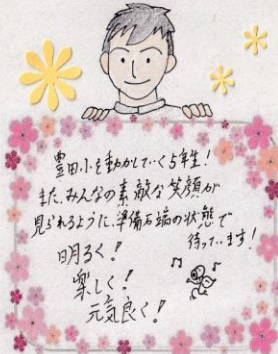 豊田小を動かしていく5年生!
また、みんなの素敵な笑顔が
見られるように、準備万端の状態で
待っています!
明るく!
楽しく!
元気良く!